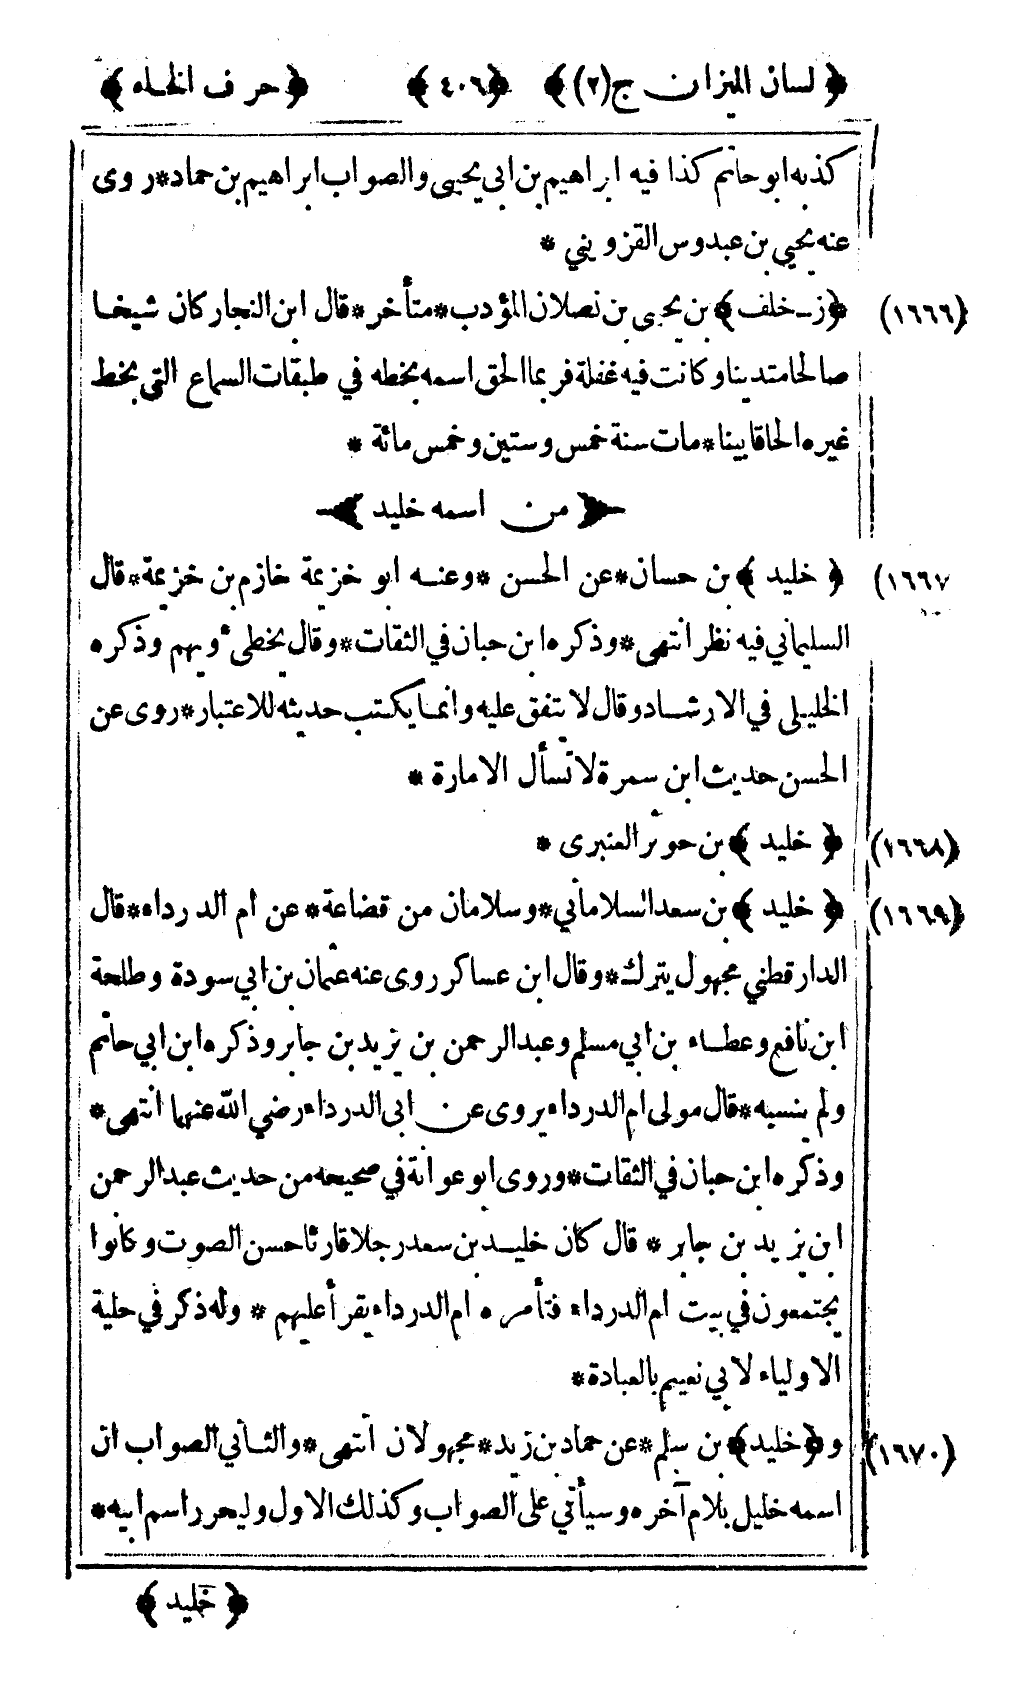 ﴿ لسان الميزان ج(٢) ﴾ ﴿٤٠٦﴾ ﴿ حرف الخاء ﴾
كذبه ابو حاتم كذا فيه ابراهيم بن ابي يحيى والصواب ابراهيم بن حماد*روى
عنه يحيى بن عبدوس القزويني *
(١٦٦٦) ﴿ز-خلف﴾ بن يحيى بن نصلان المؤدب*متأخر*قال ابن النجار كان شيخا
صالحا متدينا وكانت فيه غفلة فربما الحق اسمه بخطه في طبقات السماع التي بخط
غيره الحاقا بينا*مات سنة خمس وستين وخمس مائة *
من اسمه خليد
(١٦٦٧ ﴿ خليد ﴾ بن حسان*عن الحسن *وعنه ابو خزيمة خازم بن خزيمة*قال
السليماني فيه نظر انتهى*وذكره ابن حبان في الثقات*وقال يخطئ ويهم وذكره
الخليلي في الارشاد وقال لا يتفق عليه وانما يكتب حديثه للاعتبار*روى عن
الحسن حديث ابن سمرة لا تسأل الامارة *
(١٦٦٨) ﴿ خليد ﴾ بن حوثر العنبرى *
(١٦٦٩) ﴿ خليد ﴾ بن سعد السلاماني*وسلامان من قضاعة*عن ام الدرداء*قال
الدارقطني مجهول يترك*وقال ابن عساكر روى عنه عثمان بن ابي سودة وطلحة
ابن نافع وعطاء بن ابي مسلم وعبد الرحمن بن يزيد بن جابر وذكره ابن ابي حاتم
ولم ينسبه*قال مولى ام الدرداء يروى عن ابى الدرداء رضي الله عنهما انتهى*
وذكره ابن حبان في الثقات*وروى ابو عوانة في صحيحه من حديث عبد الرحمن
ابن يزيد بن جابر * قال كان خليد بن سعد رجلا قارئا حسن الصوت وكانوا
يجتمعون في بيت ام الدرداء فتأمره ام الدرداء يقرأ عليهم * وله ذكر في حلية
الاولياء لابي نعيم بالعبادة*
(١٦٧٠) و﴿خليد﴾ بن سلم*عن حماد بن زيد*مجهولان انتهى*والثاني الصواب ان
اسمه خليل بلام آخره وسيأتي على الصواب وكذلك الاول وليحرر اسم ابيه*
﴿ خليد ﴾